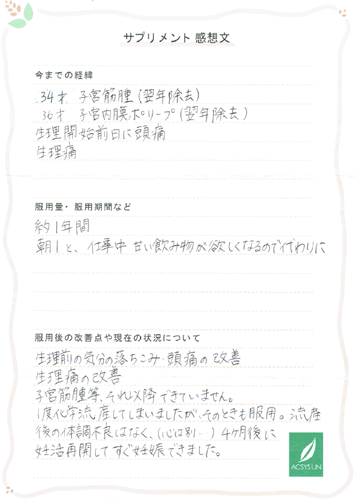 サプリメント 感想文
今までの経緯
34才 子宮筋腫(翌年除去)
36才 子宮内膜ポリープ(翌年除去)
生理開始前日に頭痛
生理痛
服用量・服用期間など
約1年間
朝1と、仕事中 甘い飲み物が欲しくなるので代わりに
服用後の改善点や現在の状況について
生理前の気分の落ちこみ・頭痛の改善
生理痛の改善
子宮筋腫等、それ以降できていません。
1度化学流産してしまいましたが、そのときも服用。流産
後の体調不良はなく、(心は別‥) 4ヶ月後に
妊活再開してすぐ妊娠できました。
ACSYS UN